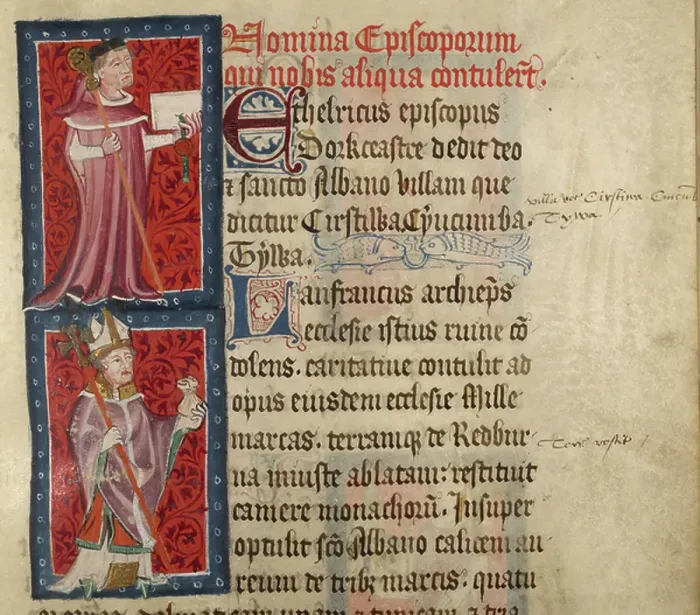 Nomina Episcoporum
qui nobis aliqua contulert̄.
Ethelricus episcopus
Dorkceastre dedit deo
⁊ sancto Albano villam que
dicitur Cirstilba. Cyucumba.
Tylba.
Lanfrancus archiep̄s
ecclesie istius ruine cō
dolens. caritatiue contulit ad
opus eiusdem ecclesie Mille
marcas. terramqꝫ de Redbur
na iniuste ablatam: restituit
camere monachorū. Insuper
optulit sc̄o Albano calicem au
reum de tribꝫ marcis. quatu
villa voc
Tywa